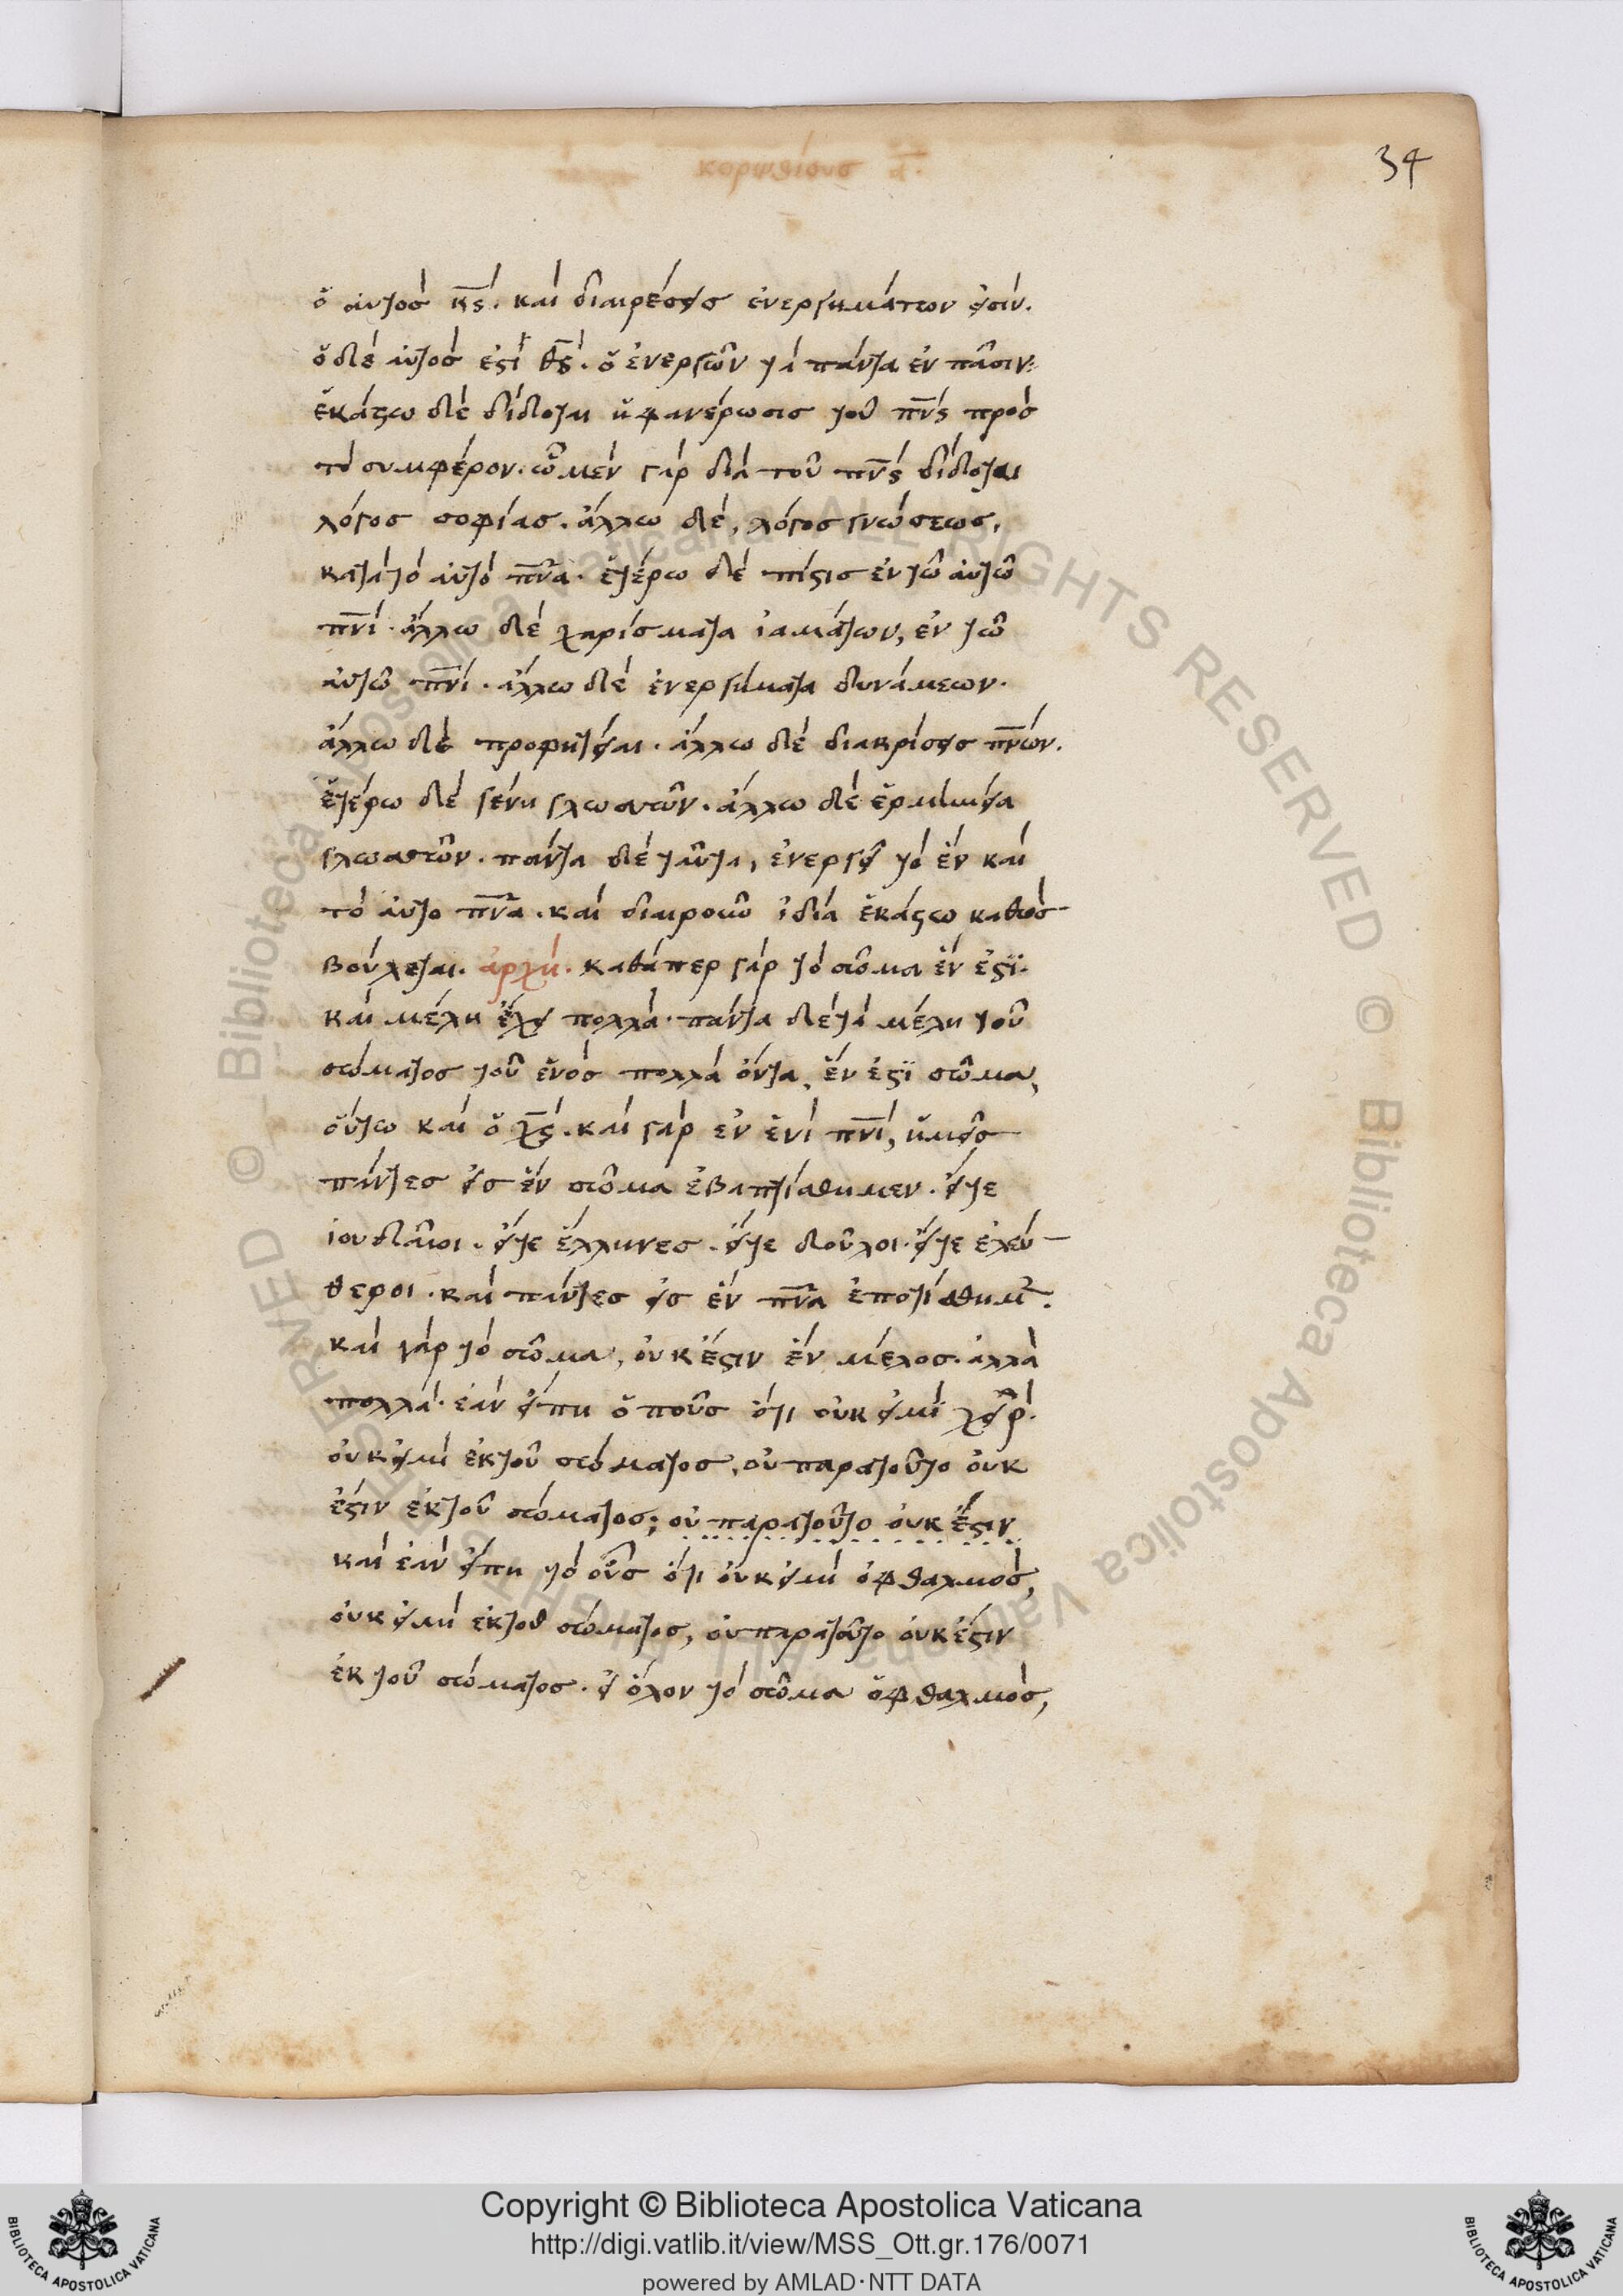 κορινθίους α.
34
ὁ αὐτὸς κ̅ς̅. καὶ διαιρέσεις ἐνεργημάτων εἰσίν.
ὁ δὲ αὐτὸς ἐστὶ θ̅ς̅. ὁ ἐνεργῶν τὰ πάντα ἐν πᾶσιν:
ἑκάστω δὲ δίδοται ἡ φανέρωσις τοῦ π̅ν̅ς̅ πρὸς
τὸ συμφέρον. ὧ μὲν γὰρ διὰ τοῦ π̅ν̅ς̅ δίδοται
λόγος σοφίας. ἄλλω δὲ, λόγος γνώσεως,
κατὰ τὸ αὐτὸ π̅ν̅α̅. ἑτέρω δὲ πίστις ἐν τῶ αὐτῶ
π̅ν̅ι̅. ἄλλω δὲ χαρίσματα ἰαμάτων, ἐν τῶ
αὐτῶ π̅ν̅ι̅. ἄλλω δὲ ἐνεργήματα δυνάμεων.
ἄλλω δὲ προφητεῖαι. ἄλλω δὲ διακρίσεις π̅ν̅ων.
ἑτέρω δὲ γένη γλωσσῶν. ἄλλω δὲ ἑρμηνεία
γλωσσῶν. πάντα δὲ ταῦτα, ἐνεργεῖ τὸ ἓν καὶ
τὸ αὐτο π̅ν̅α̅. καὶ διαιροῦν ἰδία ἑκάστω καθὼς
βούλεται. ἀρχή. καθάπερ γὰρ τὸ σῶμα ἕν ἐστϊ.
καὶ μέλη ἔχει πολλὰ. πάντα δὲ τὰ μέλη τοῦ
σώματος τοῦ ἑνὸς πολλὰ ὄντα, ἕν ἐστϊ σῶμα,
οὕτω καὶ ὁ χ̅ς̅. καὶ γὰρ ἐν ἑνὶ π̅ν̅ι̅, ἡμεῖς
πάντες εἰς ἓν σῶμα ἐβαπτίσθημεν. εἴτε
ἰουδαῖοι. εἴτε ἕλληνες. εἴτε δοῦλοι. εἴτε ἐλεύ-
θεροι. καὶ πάντες εἰς ἓν π̅ν̅α̅ ἐποτίσθημ̅.
καὶ γὰρ τὸ σῶμα, οὐκ ἔστιν ἓν μέλος. ἀλλὰ
πολλά. ἐὰν εἴπη ὁ ποῦς ὅτι οὐκ εἰμὶ χεῖρ.
οὐκ εἰμὶ ἐκ τοῦ σώματος, οὐ παρατοῦτο οὐκ
ἔστιν ἐκ τοῦ σώματος; οὐ παρατοῦτο οὐκ ἔστιν
καὶ ἐὰν εἴπη τὸ οὖς ὅτι οὐκ εἰμὶ ὀφθαλμὸς,
οὐκ εἰμὶ ἐκ τοῦ σώματος, οὐ παρατοῦτο οὐκ ἔστιν
ἐκ τοῦ σώματος. εἰ ὅλον τὸ σῶμα ὀφθαλμὸς,
© Biblioteca Apostolica Vaticana ALL RIGHTS RESERVED © Biblioteca Apostolica Vaticana ALL RIGHTS RESERVED
Copyright © Biblioteca Apostolica Vaticana
http://digi.vatlib.it/view/MSS_Ott.gr.176/0071
powered by AMLAD·NTT DATA
BIBLIOTECA APOSTOLICA VATICANA
BIBLIOTECA APOSTOLICA VATICANA